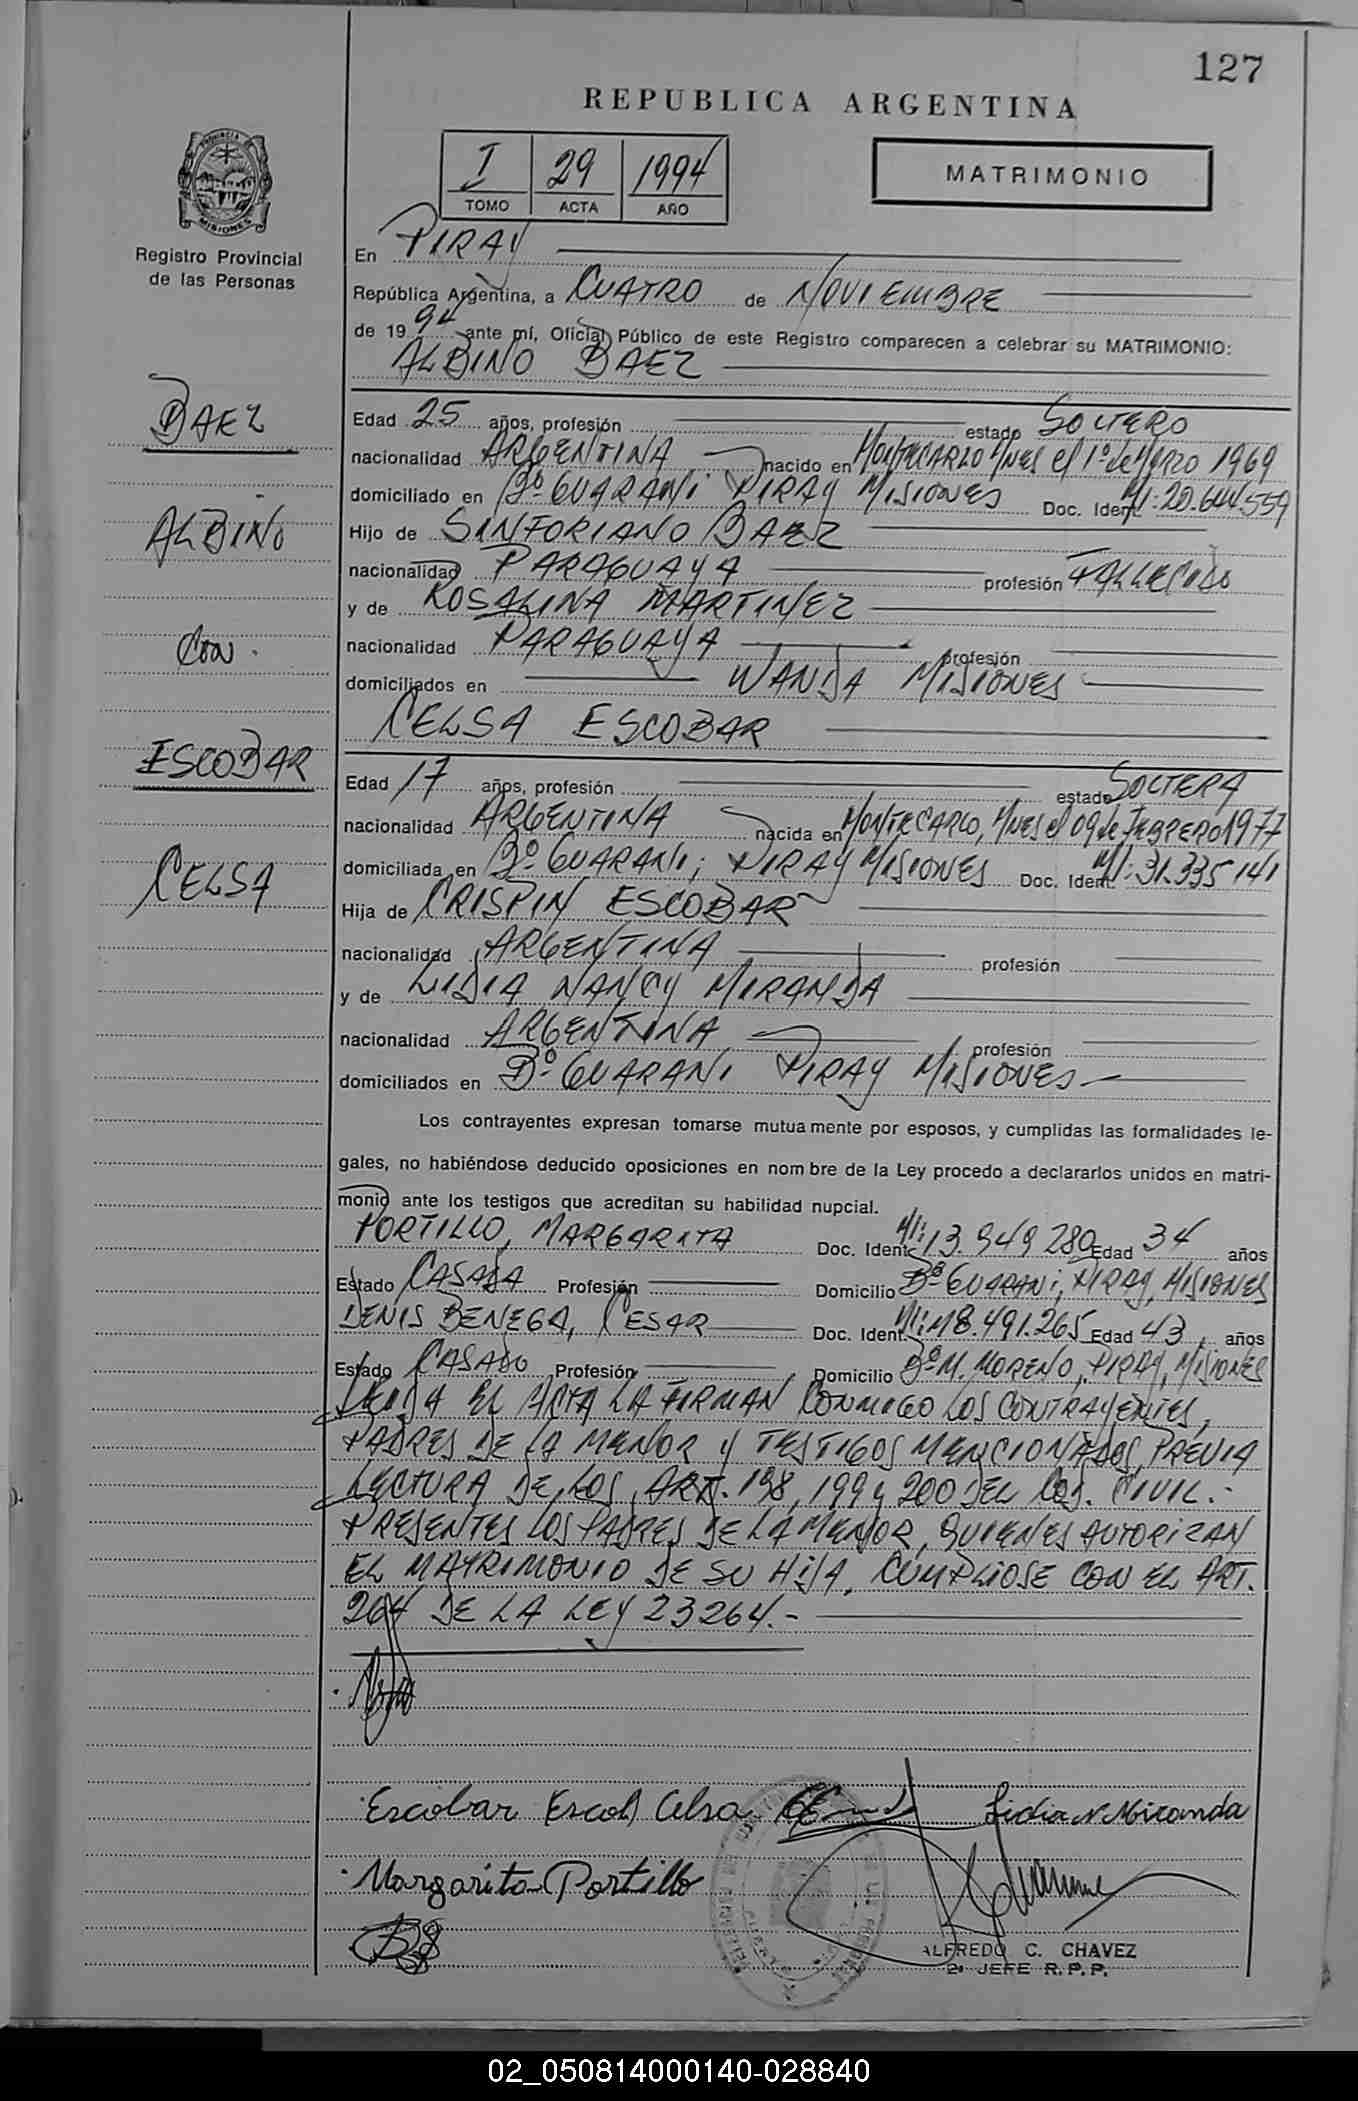 127
REPUBLICA ARGENTINA
I 29 1994
TOMO ACTA AÑO
MATRIMONIO
PROVINCIA DE
MISIONES
Registro Provincial
de las Personas
En PIRAY
República Argentina, a CUATRO de NOVIEMBRE
de 1994 ante mí, Oficial Público de este Registro comparecen a celebrar su MATRIMONIO:
ALBINO BAEZ
BAEZ
ALBINO
Con.
ESCOBAR
CELSA
Edad 25 años, profesión estado SOLTERO
nacionalidad ARGENTINA nacido en MONTECARLO Mnes el 1º de MARZO 1969
domiciliado en Bº GUARANI PIRAY MISIONES Doc. Ident. M/I: 20.644.559
Hijo de SINFORIANO BAEZ
nacionalidad PARAGUAYA profesión FALLECIDO
y de ROSALINA MARTINEZ
nacionalidad PARAGUAYA profesión
domiciliados en WANDA MISIONES
CELSA ESCOBAR
Edad 17 años, profesión estado SOLTERA
nacionalidad ARGENTINA nacida en MONTECARLO, Mnes el 09 de FEBRERO 1977
domiciliada en Bº GUARANI; PIRAY MISIONES Doc. Ident. M/I: 31.335 141
Hija de CRISPIN ESCOBAR
nacionalidad ARGENTINA profesión
y de LIDIA NANCY MIRANDA
nacionalidad ARGENTINA profesión
domiciliados en Bº GUARANI PIRAY MISIONES
Los contrayentes expresan tomarse mutuamente por esposos, y cumplidas las formalidades le-
gales, no habiéndose deducido oposiciones en nombre de la Ley procedo a declararlos unidos en matri-
monio ante los testigos que acreditan su habilidad nupcial.
PORTILLO, MARGARITA Doc. Ident. M/I: 13.949 280 Edad 34 años
Estado CASADA Profesión Domicilio Bº GUARANI, PIRAY, MISIONES
DENIS BENEGA, CESAR Doc. Ident. M/I: 18.491.265 Edad 43, años
Estado CASADO Profesión Domicilio Bº M. MORENO, PIRAY, MISIONES
LEIDA EL ACTA LA FIRMAN CONMIGO LOS CONTRAYENTES,
PADRES DE LA MENOR Y TESTIGOS MENCIONADOS, PREVIA
LECTURA DE LOS ART. 198, 199 y 200 DEL COD. CIVIL.-
PRESENTES LOS PADRES DE LA MENOR, QUIENES AUTORIZAN
EL MATRIMONIO DE SU HIJA, CUMPLIOSE CON EL ART.
264 DE LA LEY 23264.-
Escobar Escob Celsa Lidia N. Miranda
Margarita Portillo
ALFREDO C. CHAVEZ
2º JEFE R.P.P.
02_050814000140-028840